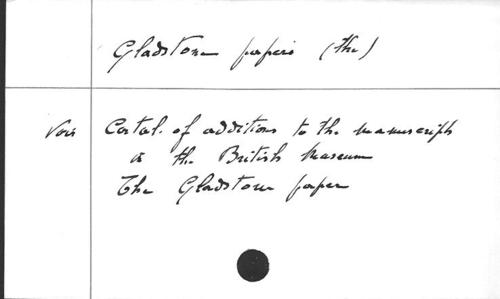 Gladstone papers (the)
Voir Catal. of additions to the manuscripts
in the British Museum
The Gladstone paper